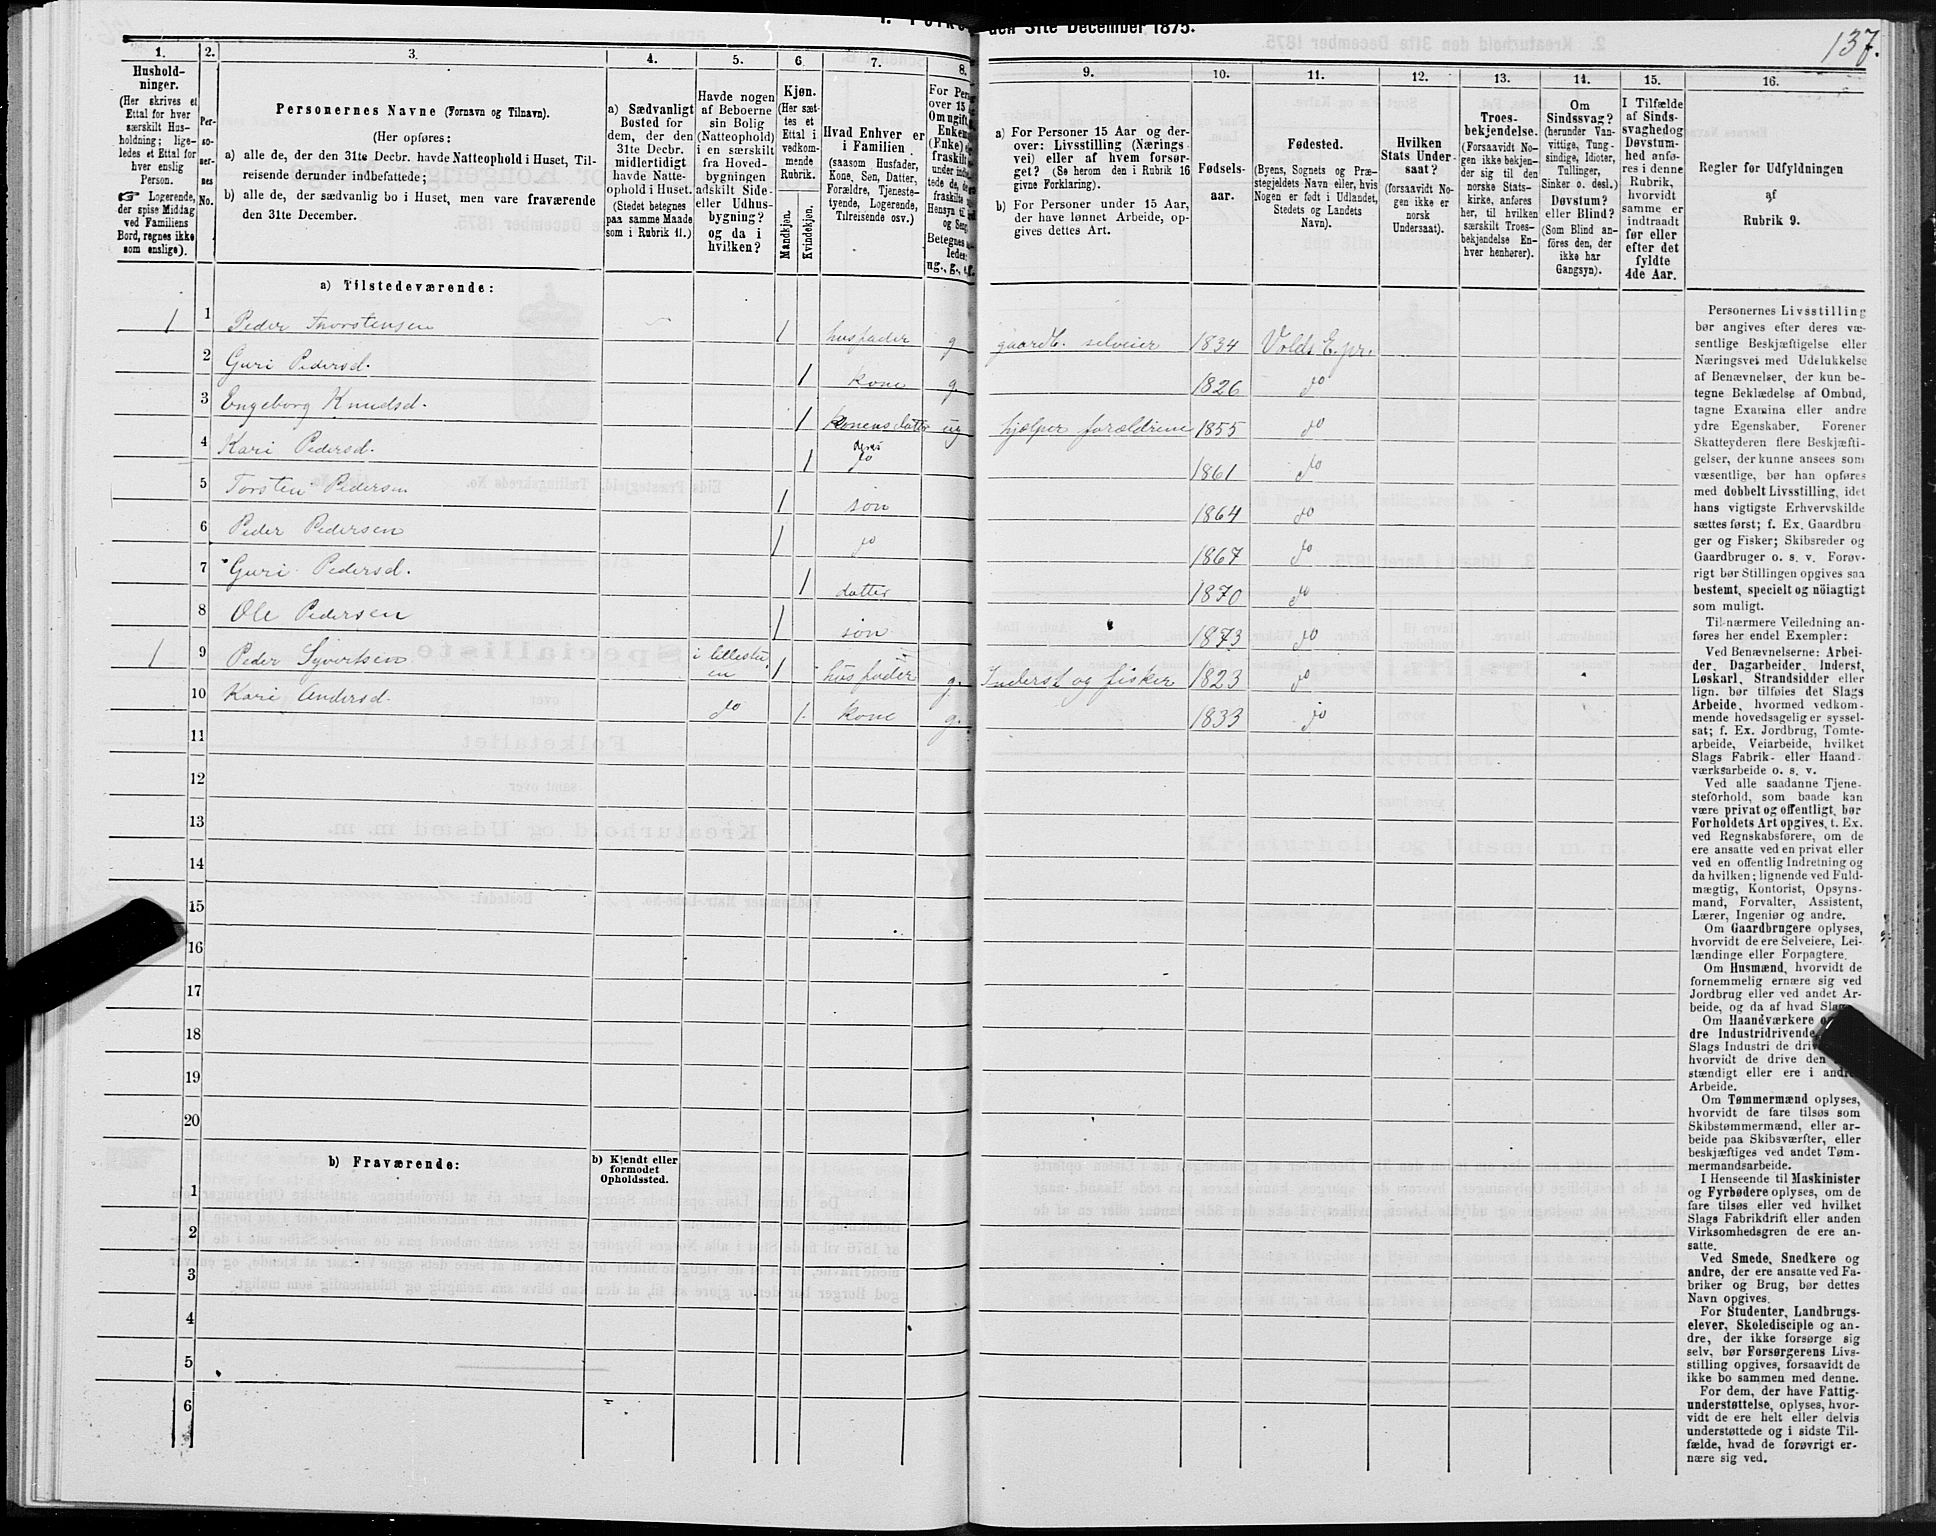 den 31te December 1875.
137.
1.
Hushold-
ninger.
(Her skrives et
Ettal for hver
særskilt Hus-
holdning; lige-
ledes et Ettal for
hver enslig
Person.
☞ Logerende,
der spise Middag
ved Familiens
Bord, regnes ikke
som enslige).
2.
Per-
so-
ner-
nes
No.
3.
Personernes Navne (Fornavn og Tilnavn).
(Her opføres:
a) alle de, der den 31te Decbr. havde Natteophold i Huset, Til-
reisende derunder indbefattede;
b) alle de, der sædvanlig bo i Huset, men vare fraværende
den 31te December.
4.
a) Sædvanligt
Bosted for
dem, der den
31te Decbr.
midlertidigt
havde Natte-
ophold i Huset.
(Stedet betegnes
paa samme Maade
som i Rubrik 11.)
5.
Havde nogen
af Beboerne
sin Bolig
(Natteophold)
i en særskilt
fra Hoved-
bygningen
adskilt Side-
eller Udhus-
bygning?
og da i
hvilken?
6
Kjøn.
(Her sæt-
tes et
Ettal i
vedkom-
mende
Rubrik.
Mandkjøn.
Kvindekjøn.
7.
Hvad Enhver er
i Familien
(saasom Husfader,
Kone, Søn, Datter,
Forældre, Tjeneste-
tyende, Logerende,
Tilreisende osv.)
8.
For Per
over 15
Om ugift,
Enkem
(Enke)
fraskilt
Betegnes
ledes:
ug., g.,
9.
a) For Personer 15 Aar og der-
over: Livsstilling (Nærings
vei) eller af hvem forsør-
get? (Se herom den i Rubrik 16
givne Forklaring).
b) For Personer under 15 Aar,
der have lønnet Arbeide, op-
gives dettes Art.
10.
Fødsels-
aar.
11.
Fødested.
(Byens, Sognets og Præ-
stegjeldets Navn eller, hvis
Nogen er født i Udlandet,
Stedets og Landets
Navn).
12.
Hvilken
Stats Under-
saat?
(forsaavidt No-
gen ikke er
norsk
Undersaat).
13.
Troes-
bekjendelse.
(Forsaavidt No-
gen ikke bekjen-
der sig til den
norske Stats-
kirke, anføres
her, til hvilken
særskilt Troes-
bekjendelse En-
hver henhører).
14.
Om
Sindssvag?
(herunder Van-
vittige, Tung-
sindige, Idioter,
Tullinger,
Sinker o. desl.)
Døvstum?
eller Blind?
(Som Blind an-
føres den, der
ikke har
Gangsyn).
15.
I Tilfælde
af Sinds-
svaghed og
Døvstum-
hed anfø-
res i denne
Rubrik,
hvorvidt
samme er
indtraadt
før eller
efter det
fyldte
4de Aar.
16.
Regler for Udfyldningen
af
Rubrik 9.
a) Tilstedeværende:
1 1 Peder Thorstensen 1 husfader g gaardb. selveier 1834 Volds E.pr.
2 Guri Pedersd. 1 kone g. 1826 do
3 Engeborg Knudsd. 1 konens datter ug hjælper forældrene 1855 do
4 Kari Pedersd. 1 deres do 1861 do
5 Torsten Pedersen 1 søn 1864 do
6 Peder Pedersen 1 do 1867 do
7 Guri Pedersd. 1 datter 1870 do
8 Ole Pedersen 1 søn 1873 do
1 9 Peder Syvertsen i lillestu en 1 husfader g. Inderst og fisker 1823 do
10 Kari Andersd. do 1. kone g. 1833 do
11
12
13
14
15
16
17
18
19
20
b) Fraværende:
b) Kjendt eller
formodet
Opholdssted.
1
2
3
4
5
6
Personernes Livsstilling
bør angives efter deres væ-
sentlige Beskjæftigelse eller
Næringsvei med Udelukkelse
af Benævnelser, der kun be-
tegne Beklædelse af Ombud,
tagne Examina eller andre
ydre Egenskaber. Forener
Skatteyderen flere Beskjæfti-
gelser, der kunne ansees som
væsentlige, bør han opføres
med dobbelt Livsstilling, idet
hans vigtigste Erhvervskilde
sættes først; f. Ex. Gaardbru
ger og Fisker; Skibsreder og
Gaardbruger o. s. v. Forøv-
rigt bør Stillingen opgives saa
bestemt, specielt og nöiagtigt
som muligt.
Til nærmere Veiledning an-
føres her endel Exempler:
Ved Benævnelserne: Arbei-
der, Dagarbeider, Inderst,
Løskarl, Strandsidder eller
lign. bør tilføies det Slags
Arbeide, hvormed vedkom-
mende hovedsagelig er syssel-
sat; f. Ex. Jordbrug, Tomte-
arbeide, Veiarbeide, hvilket
Slags Fabrik- eller Haand-
værksarbeide o. s. v.
Ved alle saadanne Tjene-
steforhold, som baade kan
være privat og offentligt, bør
Forholdets Art opgives, t. Ex.
ved Regnskabsførere, om de
ere ansatte ved en privat eller
ved en offentlig Indretning og
da hvilken; lignende ved Fuld-
mægtig, Kontorist, Opsyns-
mand, Forvalter, Assistent,
Lærer, Ingeniør og andre.
Om Gaardbrugere oplyses,
hvorvidt de ere Selveiere, Lei-
lændinge eller Forpagtere.
Om Husmænd, hvorvidt de
fornemmelig ernære sig ved
Jordbrug eller ved andet Ar-
beide, og da af hvad Slags
Om Haandværkere
dre Industridrivende,
Slags Industri de
hvorvidt de drive den
stændigt eller ere i andres
Arbeide.
Om Tømmermænd oplyses,
hvorvidt de fare tilsøs som
Skibstømmermænd, eller ar-
beide paa Skibsværfter, eller
beskjæftiges ved andet Tøm-
mermandsarbeide.
I Henseende til Maskinister
og Fyrbødere oplyses, om de
fare tilsøs eller ved hvilket
Slags Fabrikdrift eller anden
Virksomhedsgren de ere an-
satte.
Ved Smede, Snedkere og
andre, der ere ansatte ved Fa-
briker og Brug, bør dettes
Navn opgives.
For Studenter, Landbrugs-
elever, Skoledisciple og an-
dre, der ikke forsørge sig
selv, bør Forsørgerens Livs-
stilling opgives, forsaavidt de
ikke bo sammen med denne.
For dem, der have Fattig-
understøttelse, oplyses, hvor-
vidt de ere helt eller delvis
understøttede og i sidste Til-
fælde, hvad de forøvrigt er-
nære sig ved.